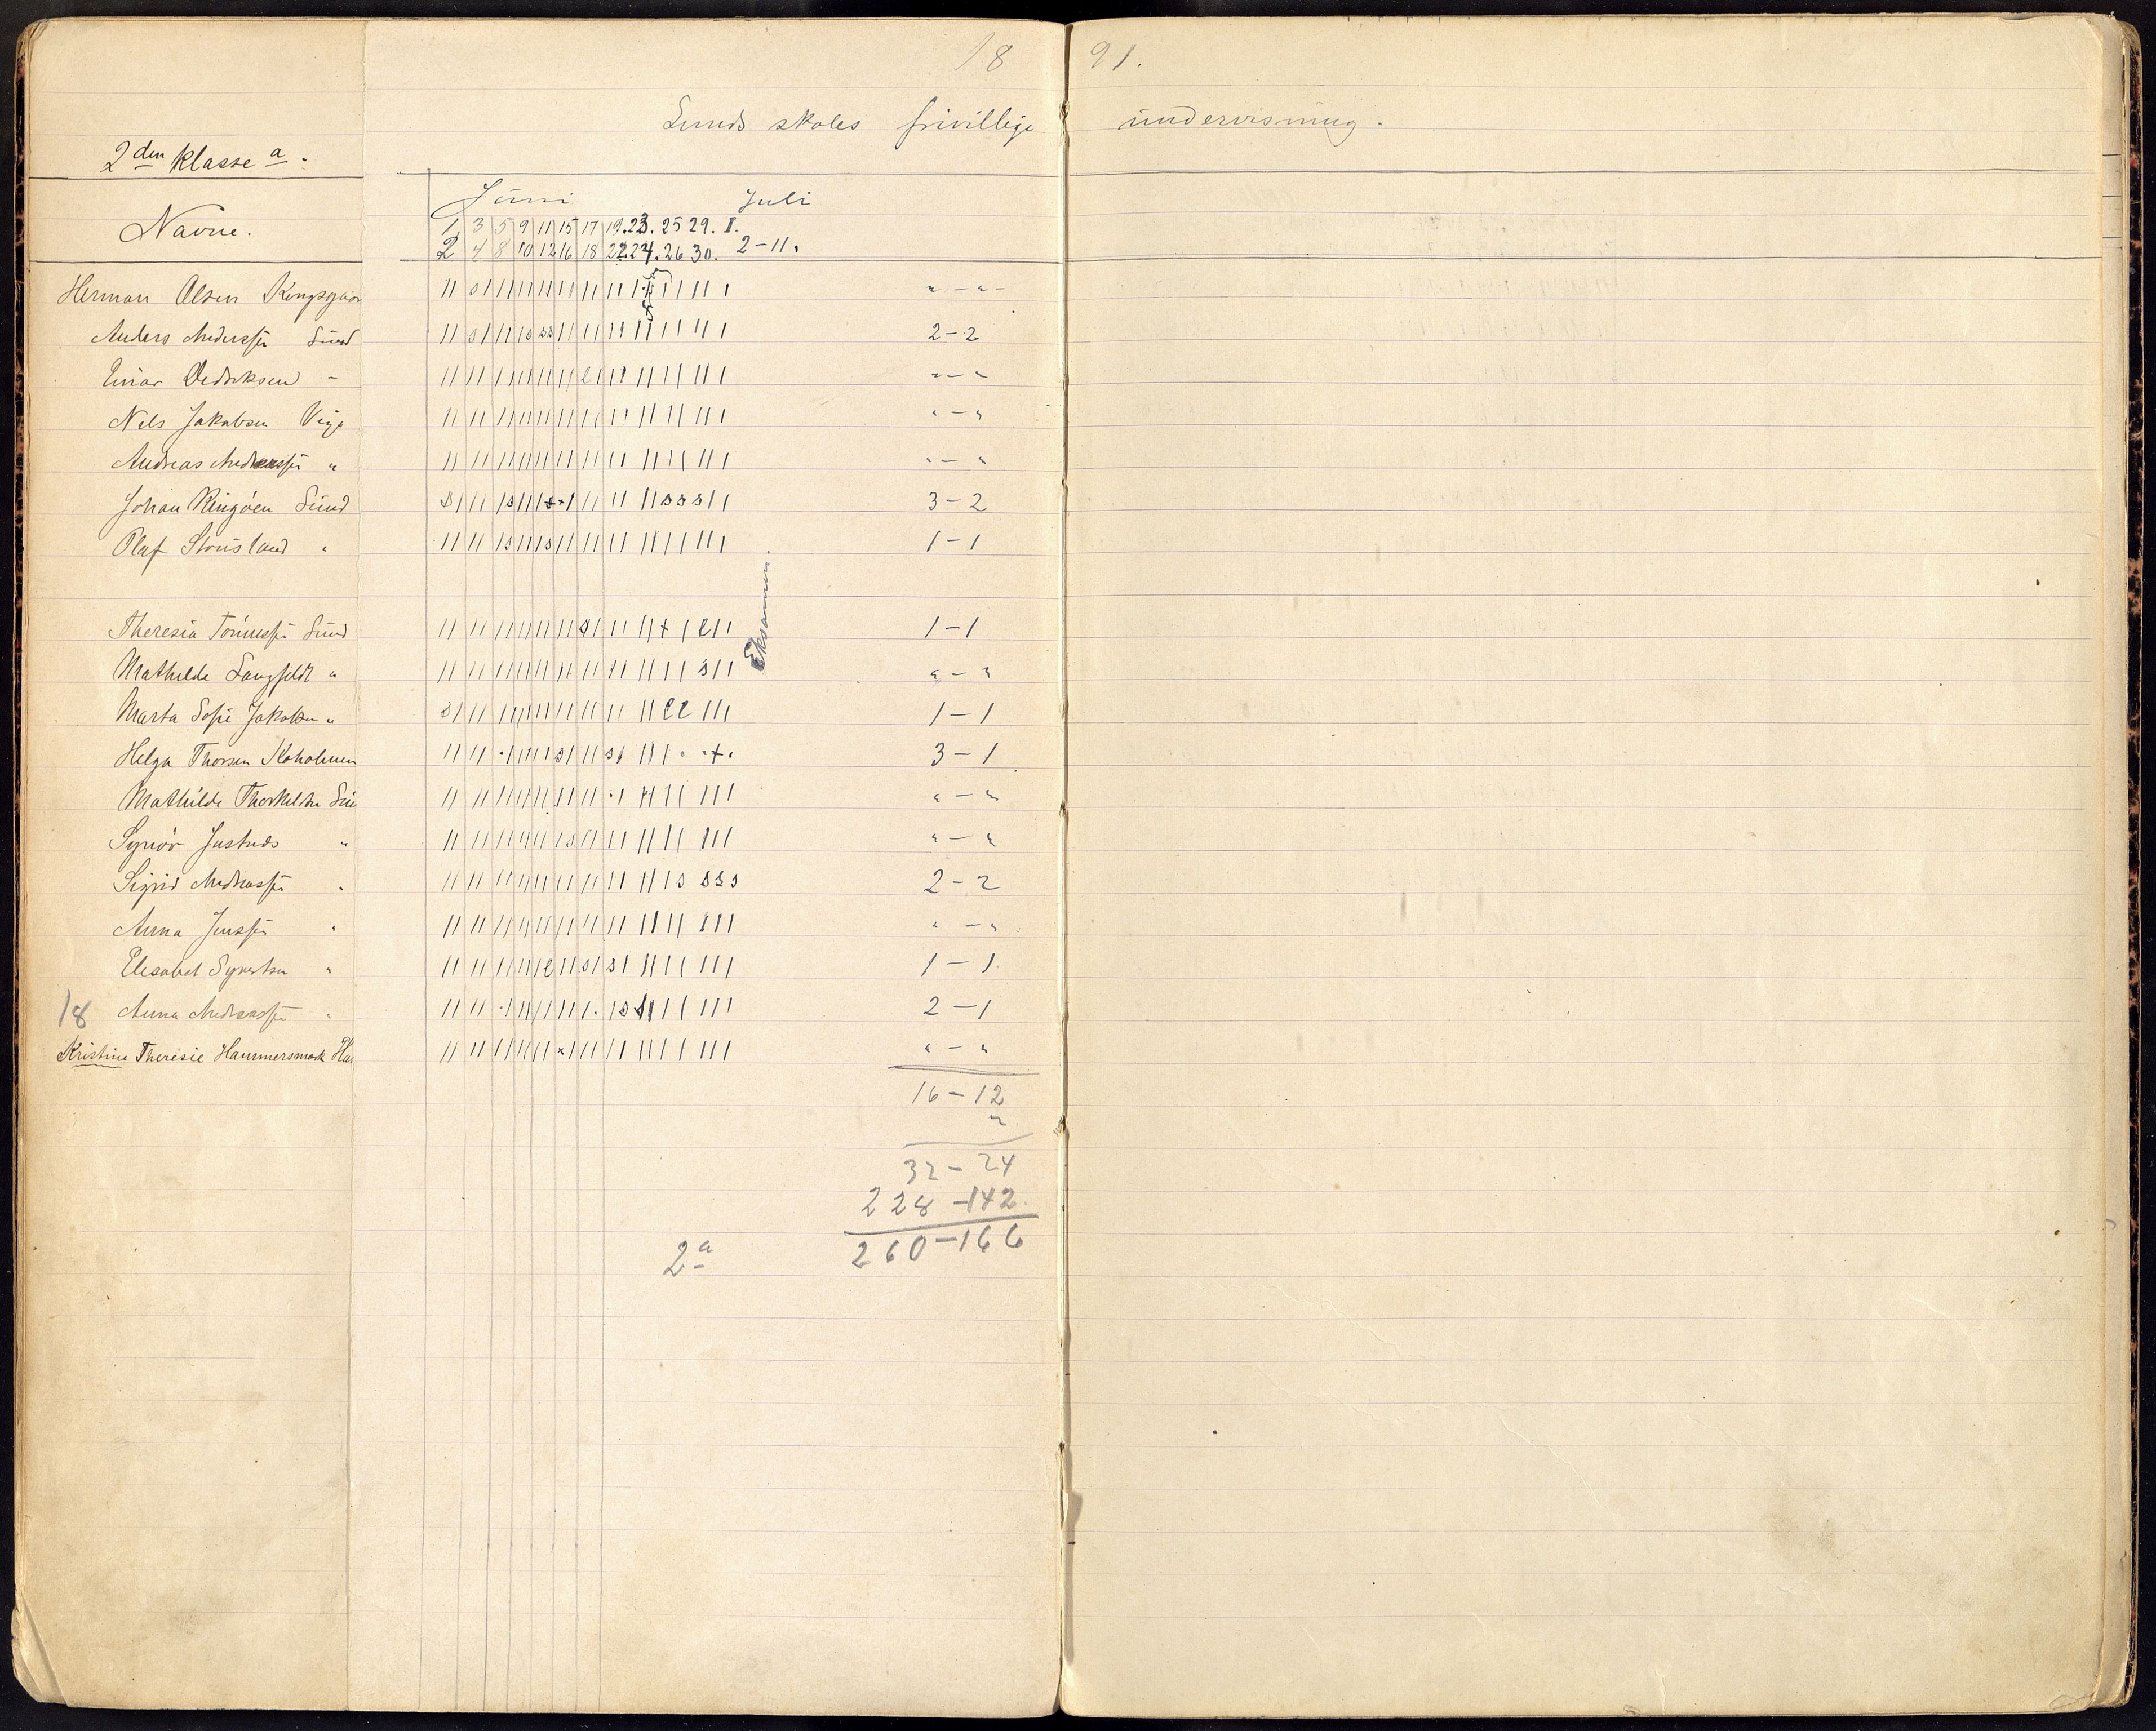 18 91.
Lunds skoles frivillige undervisning.
2den klasse a.
Juni Juli
Navne.
1 3 5 9 11 15 17 19. 23. 25 29. 1.
2 4 8 10 12 16 18 22. 24. 26 30. 2-11.
Herman Olsen " - "
Anders Anderssen Lund 2-2
Einar Dedriksen - " - "
Nils Jakobsen Vige " - "
Andreas Andreassen " " - "
Johan Ringøen Lund 3-2
Olaf Stousland " 1-1
Eksamen.
Theresia Tønnessen Lund 1-1
Mathilde Langfeldt " " - "
Marta Sofie Jakobsen " 1-1
Helga Thorsen Koholmen 3-1
Mathilde " - "
Synøv Justnes " " - "
Sigrid Andreassen " 2-2
Anna Jenssen " " - "
Elisabet Syvertsen " 1-1
18 Anna Andreassen " 2-1
Kristine Theresie Hammersmark Ha " - "
16-12
"
32-24
228-142
2a 260-166